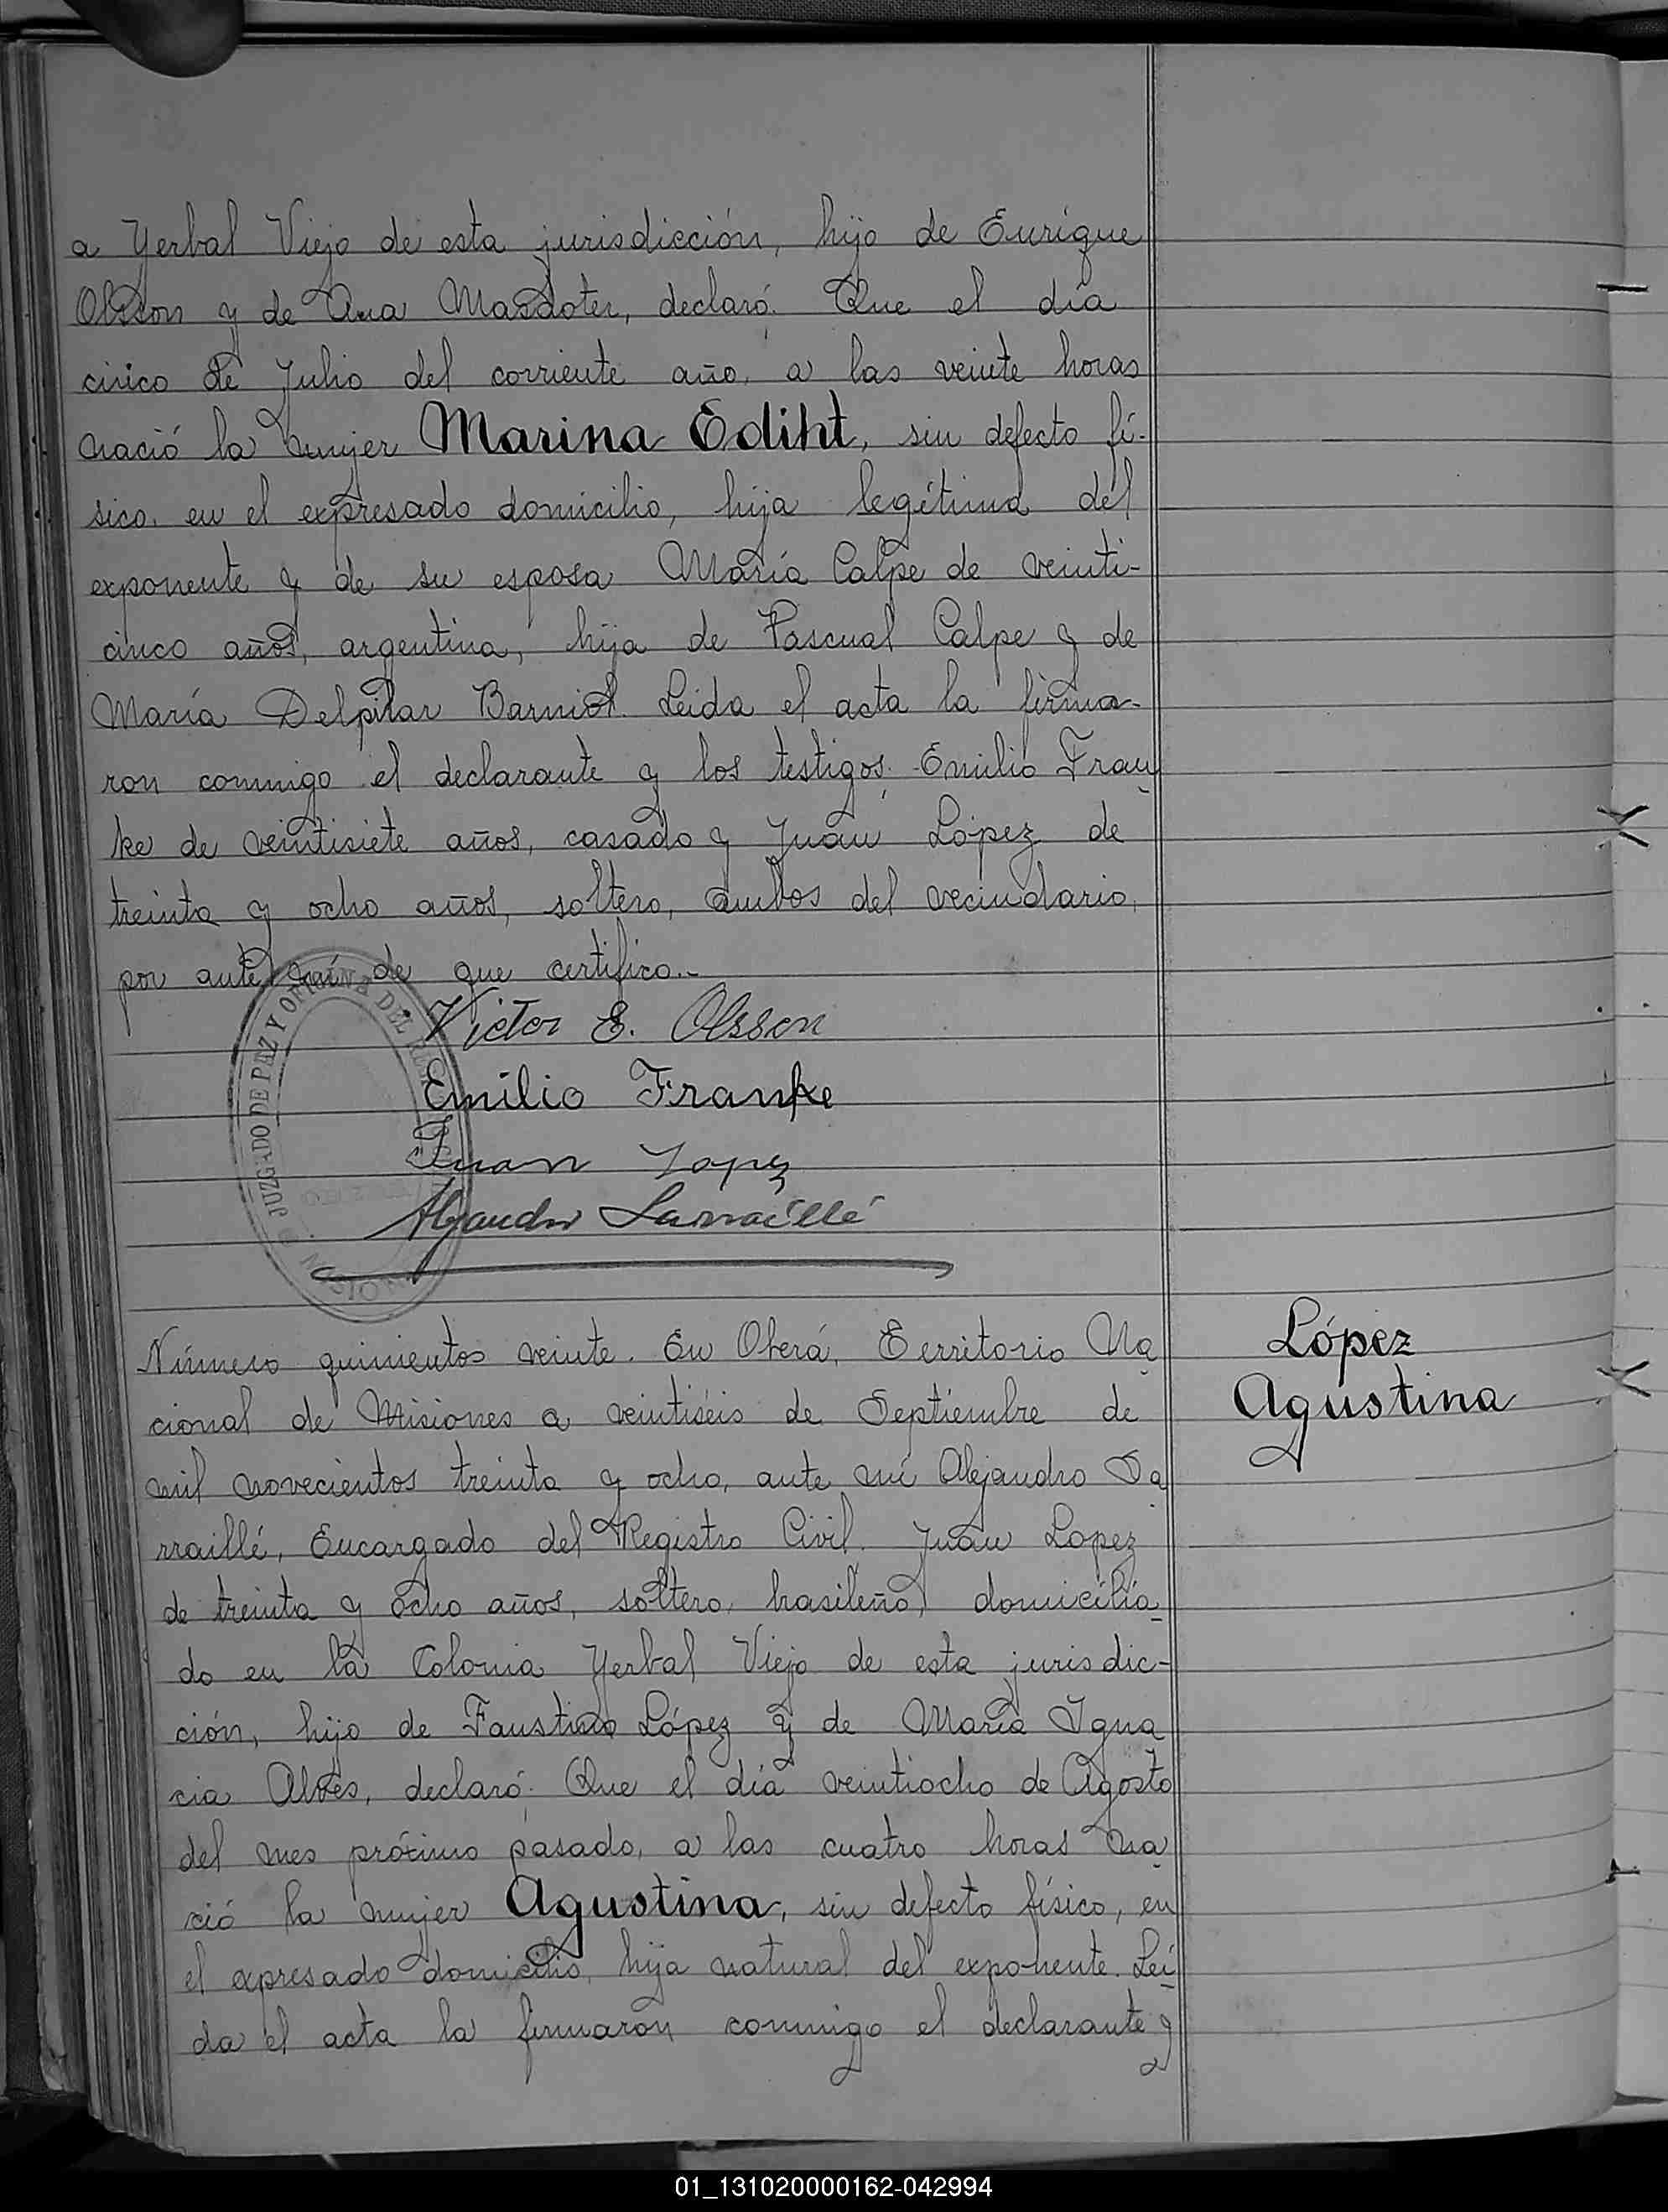 a Yerbal Viejo de esta jurisdicción, hijo de Enrique
Olsson y de Ana Masdoter, declaró: Que el día
cinco de Julio del corriente año, a las veinte horas
nació la mujer Marina Ediht, sin defecto fí-
sico, en el expresado domicilio, hija legítima del
exponente y de su esposa María Calpe de veinti-
cinco años, argentina, hija de Pascual Calpe y de
María Delpilar Barniol. Leida el acta la firma-
ron conmigo el declarante y los testigos: Emilio Fran
ke de veintisiete años, casado y Juan López de
treinta y ocho años, soltero, ambos del vecindario,
por ante mí de que certifico.-
Victor E. Olsson
Emilio Franke
Juan Lopez
Alejandro Larraillé
JUZGADO DE PAZ Y OFICINA DEL
Número quinientos veinte. En Oberá, Territorio Na
cional de Misiones a veintiséis de Septiembre de
mil novecientos treinta y ocho, ante mí Alejandro La
rraillé, Encargado del Registro Civil. Juan Lopez
de treinta y ocho años, soltero, brasileño, domicilia
do en la Colonia Yerbal Viejo de esta jurisdic-
ción, hijo de Faustino López y de María Igna
cia Alves, declaró: Que el día veintiocho de Agosto
del mes próximo pasado, a las cuatro horas na
ció la mujer Agustina, sin defecto físico, en
el expresado domicilio, hija natural del exponente. Leí
da el acta la firmaron conmigo el declarante y
López
Agustina
01_131020000162-042994